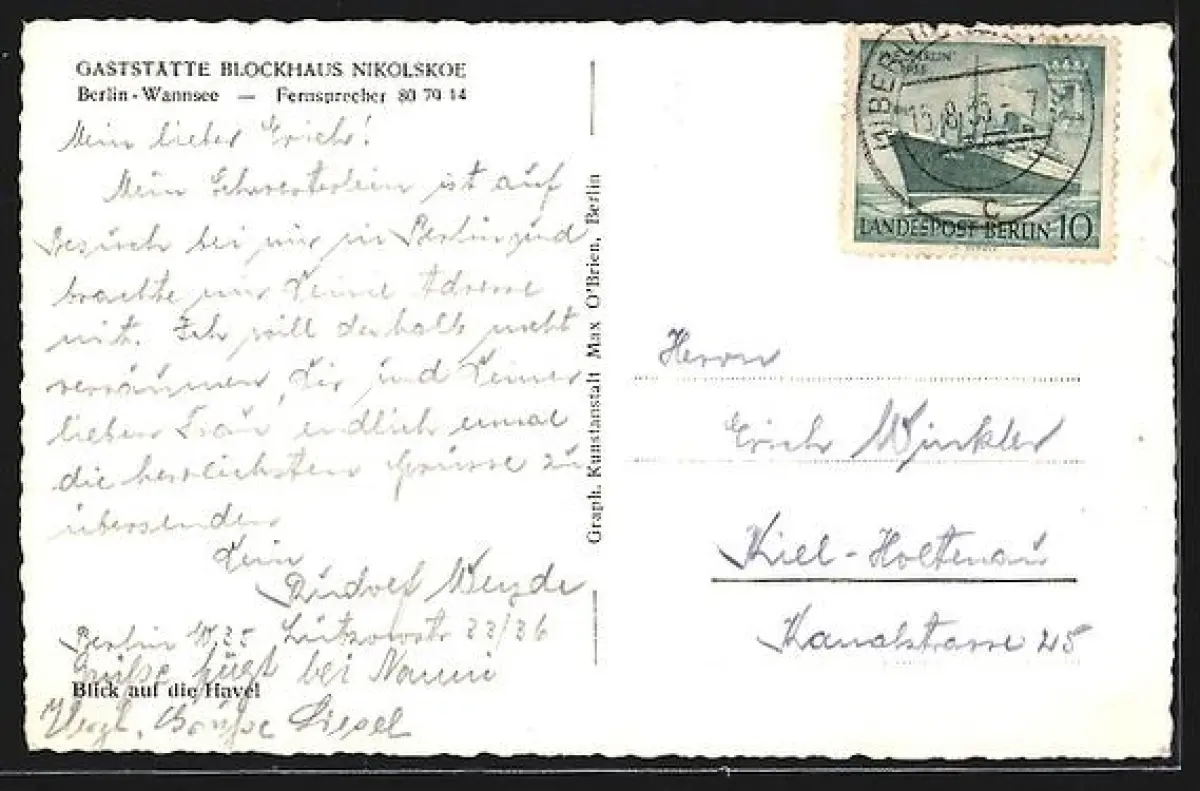 GASTSTÄTTE BLOCKHAUS NIKOLSKOE
Berlin-Wannsee — Fernsprecher 80 79 14
Mein lieber Erich!
Mein Schwesterlein ist auf
Besuch bei mir in Berlin und
brachte mir Deine Adresse
mit. Ich will deshalb nicht
versäumen, Dir und Deiner
lieben Frau endlich einmal
die herzlichsten Grüsse zu
übersenden
Dein
Rudolf
Berlin W.35 Lützowstr 22/26
Grüße fügt bei Nanni
Blick auf die Havel
Vergl. Grüße Liesel
Graph. Kunstanstalt Max O'Brien, Berlin
BERLIN
15.8.55
C
LANDESPOST BERLIN 10
Herrn
Erich Winkler
Kiel-Holtenau
Kanalstrasse 25